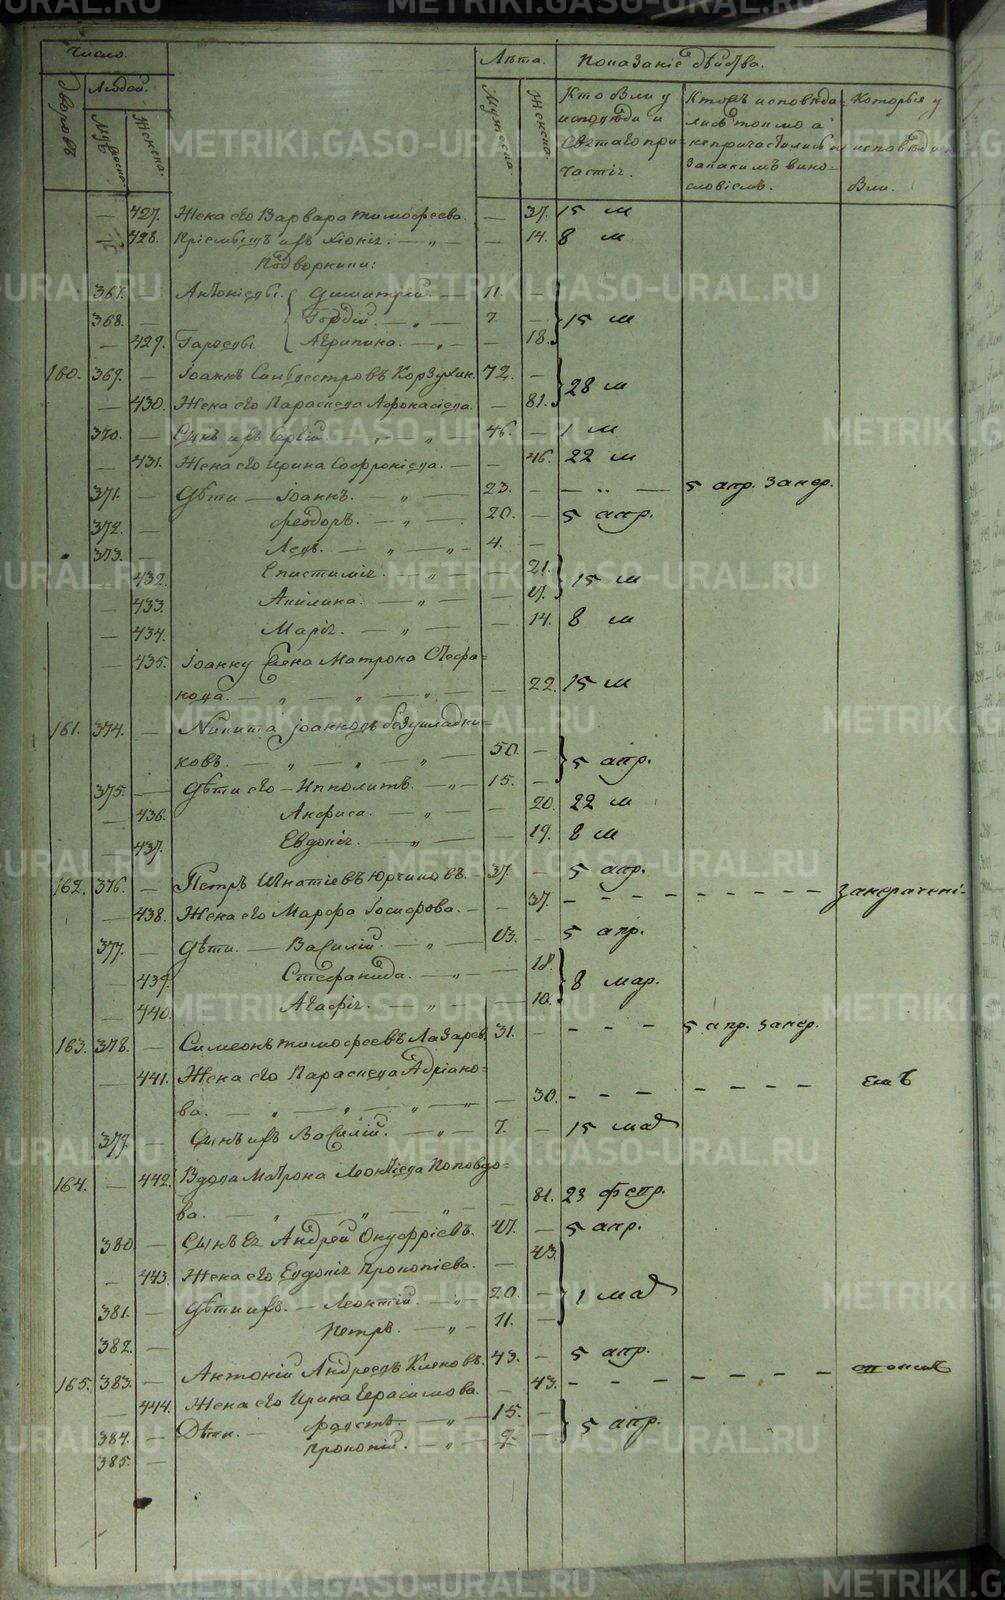 Число.
Лѣта.
Показанiе дѣйства.
Дворовъ
Людей.
Мужеска.
Женска.
Мужеска.
Женска.
Кто были у исповѣди и Святаго при=
частiя.
Которые у исповѣди не
были.
— 427. Жена его Варвара Тимофеева. — 37. 15 м
— 428. Прiемышъ ихъ Хiонiя. — „ — — 14. 8 м
Подворники:
367. — Антонiевы. Димитрiй. — 11. —
368. — Гордiй. — „ — 7. — 15 м
— 429. Агрипина. — „ — — 18.
160. 369. — Iоаннъ Силвестровъ Корзухин. 72. — 28 м
— 430. Жена его Параскева Афонасiева. — 81.
370. — Сынъ ихъ Сергiй. — „ — „ — 46. — 1 м
— 431. Жена его Ирина Софронiева. — — 46. 22 м
371. — Дѣти — Iоаннъ. — „ — 23. — — „ — 5 апр.
372. — Феодоръ. — „ — 20. — 5 апр.
373. — Левъ. — „ — „ — 4. —
— 432. Епистимiя. — „ — — 21. 15 м
— 433. Акилина. — „ — — 17.
— 434. Марiя. — „ — — 14. 8 м
— 435. Iоанну жена Матрона Стефа=
нова. — „ — „ — „ — — 22. 15 м
161. 374. — Никита Iоанновъ Безукладни=
ковъ. — „ — „ — „ — 50. — 5 апр.
375. — Дѣти его — Ипполитъ. — „ — 15. —
— 436. Анфиса. — „ — — 20. 22 м
— 437. Евдокiя. — „ — — 19. 8 м
162. 376. — Петръ Игнатiевъ Юрчиковъ. 37. — 5 апр.
— 438. Жена его Марфа Iосифова. — — 37. — — — — — — — —
377. — Дѣти. — Василiй. — „ — 13. — 5 апр.
— 439. Стефанида. — „ — — 18. 8 мар.
— 440. Агафiя. — „ — — 10.
163. 378. — Симеонъ Тимофеевъ Лазарев. 31. — — — — 5 апр.
— 441. Жена его Параскева Адрiано=
ва. — „ — „ — „ — — 30. — — — — — — —
379. — Сынъ ихъ Василiй. — „ — 7. — 15 мая
164. — 442. Вдова Матрона Леонтiева Поповдо=
ва. — „ — „ — „ — — 81. 23 февр.
380. — Сынъ ея Андрей Онуфрiевъ. 47. — 5 апр.
— 443. Жена его Евдокiя Прокопiева. — 43.
381. — Дѣти ихъ. — Леонтiй. — „ 20. — 1 мая
382. — Петръ. — „ — 11. —
165. 383. — Антонiй Андреевъ Клековъ. 43. — 5 апр.
— 444. Жена его Ирина Герасимова. — 43. — — — — — — —
384. — Дѣти. — — „ — 15. — 5 апр.
385. — Прокопiй. — „ — 9. —
METRIKI.GASO-URAL.RU